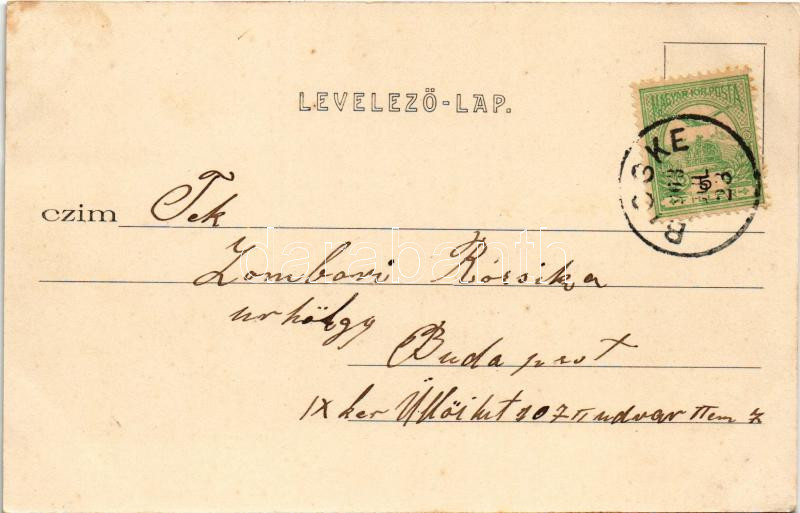 LEVELEZŐ-LAP.
MAGYAR KIR. POSTA
BICSKE
5
czim
Tek
Zombori Rózsika
darabanth
urhölgy
Budapest
IX ker Üllőiut 107 II udvar II em 7